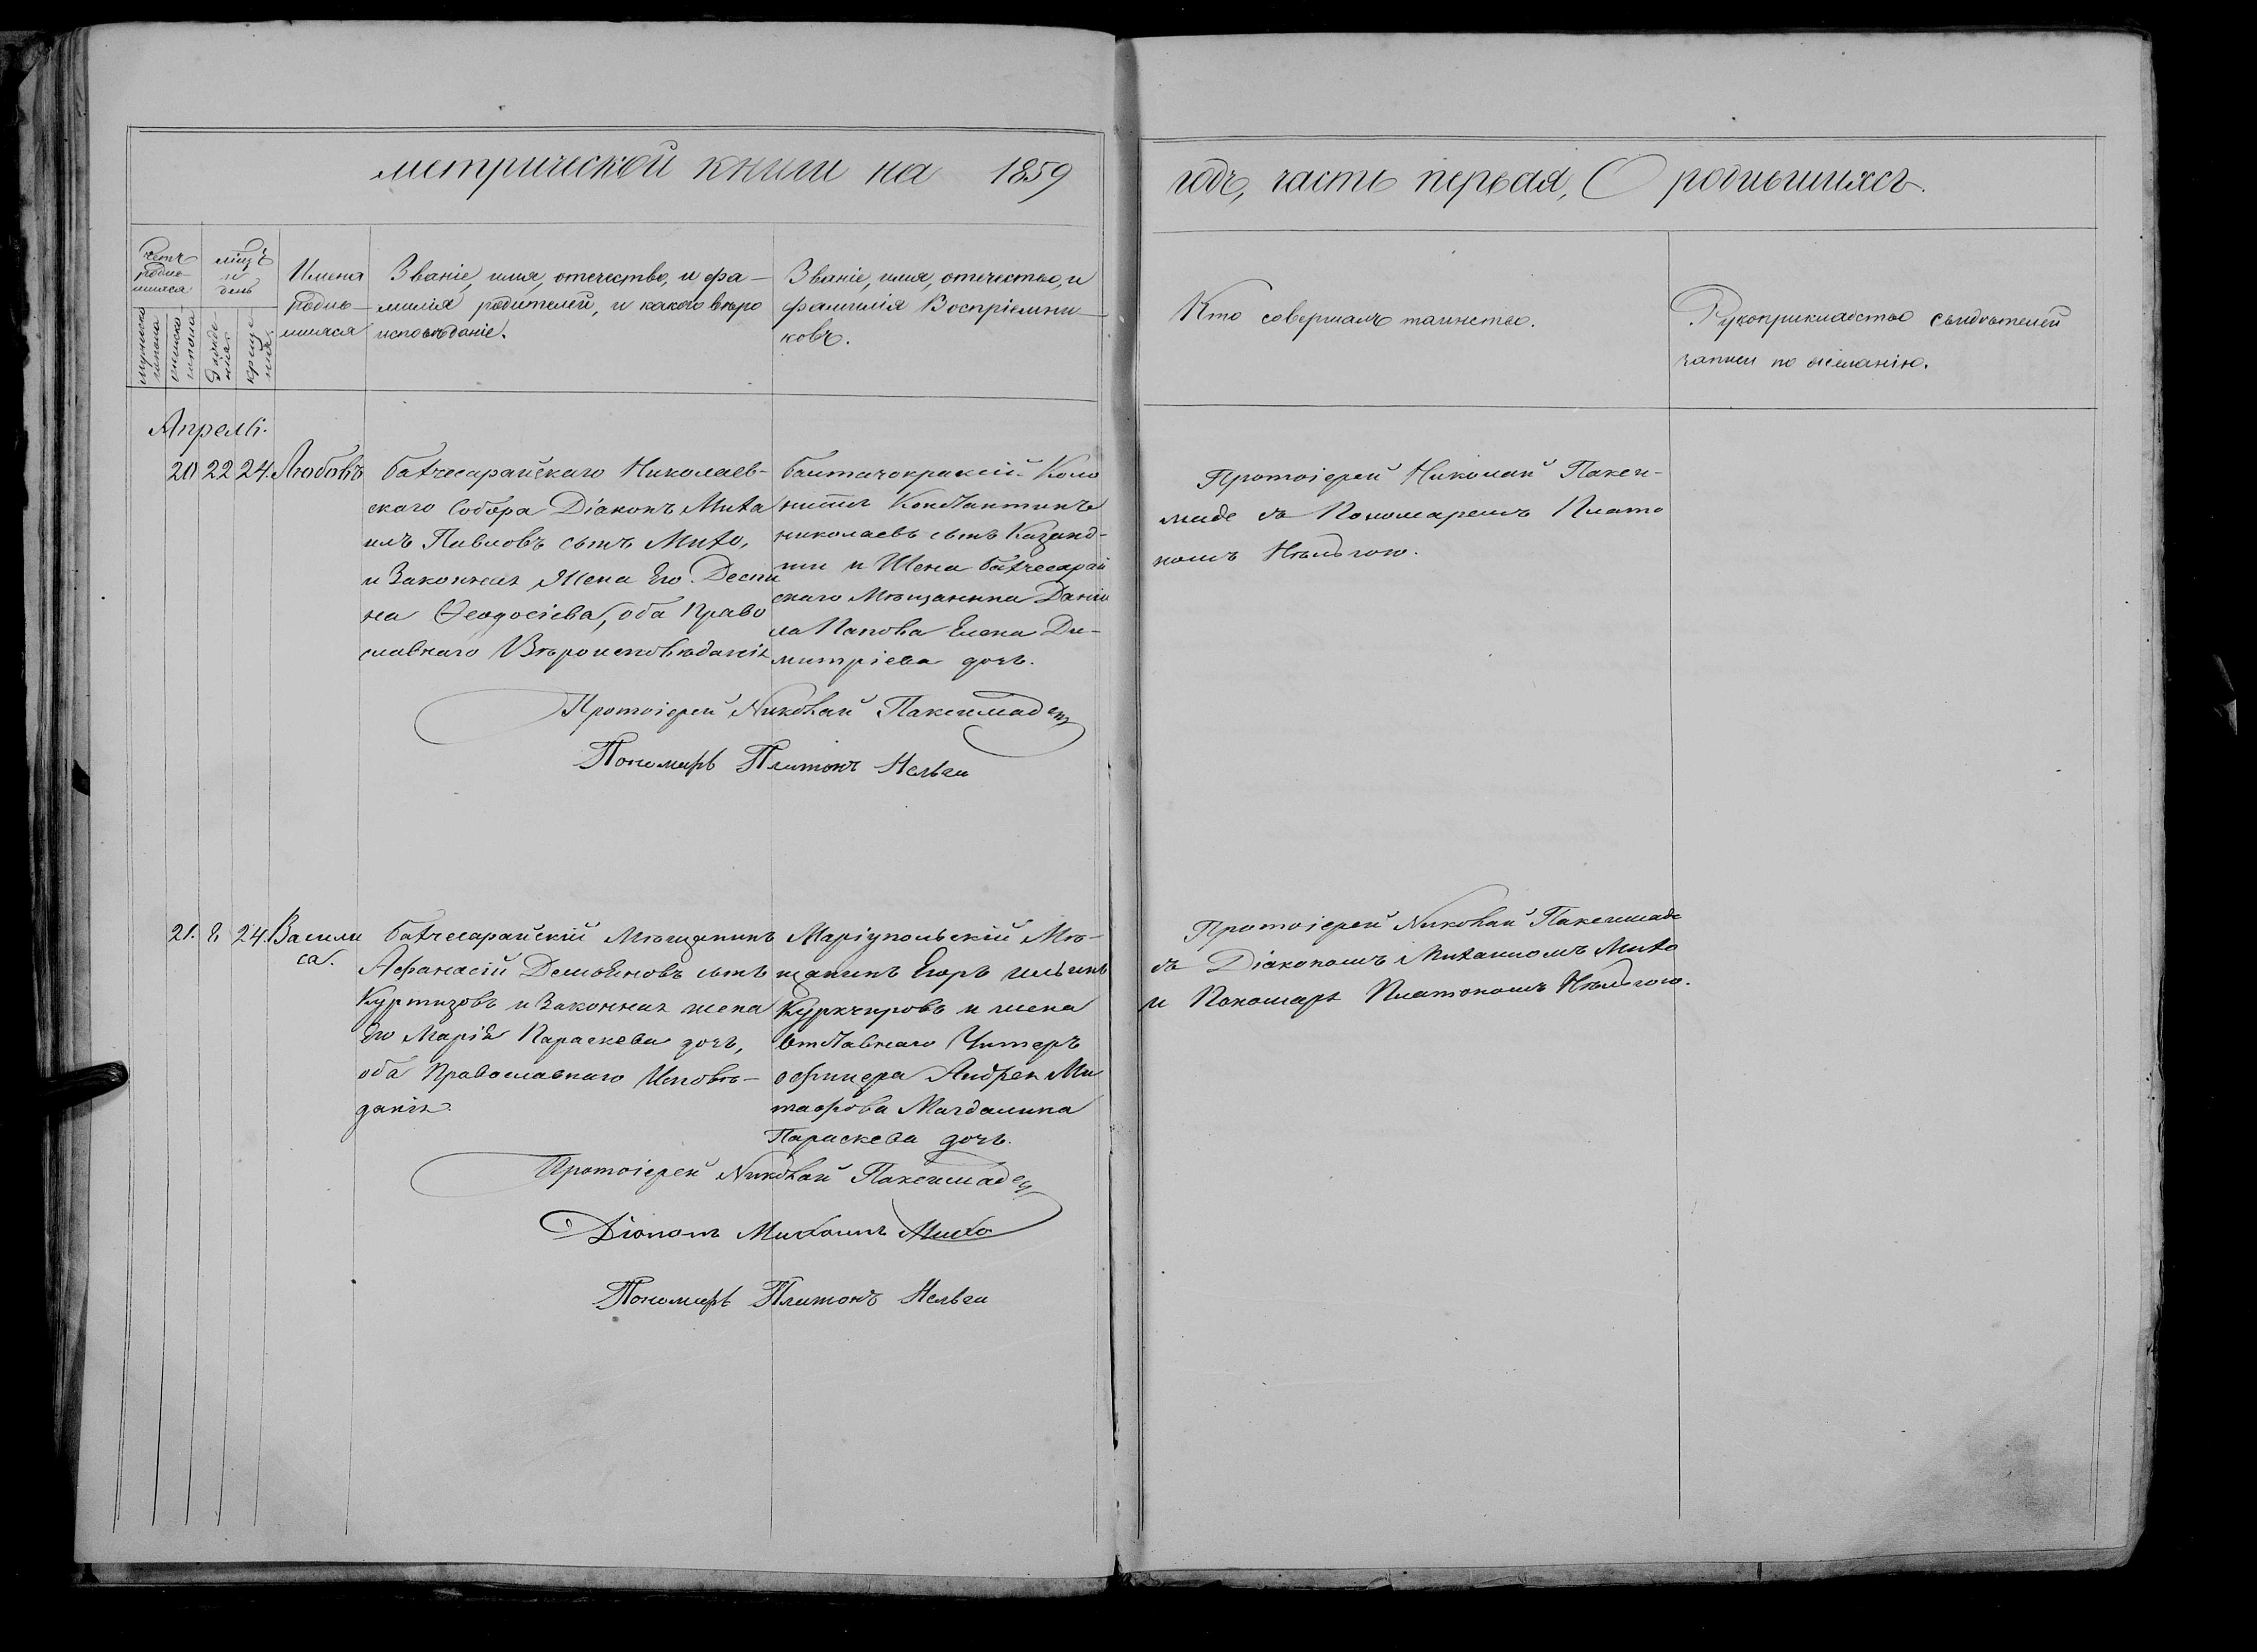 метрической книги на 1859
годъ, часть первая, О родившихся.
Счетъ родив-
шихся
мѣсц.
и
день
мужеска
женска
рожде-
нія.
креще-
нія.
Имена
родив-
шихся
Званіе, имя, отечество, и фа-
милія родителей, и какого вѣро
исповѣданіе.
Званіе, имя, отечество, и
фамилія Воспріемни
ковъ.
Кто совершалъ таинство.
Рукоприкладство свидѣтелей
записи по желанію.
Апрель.
20 22 24. Любовь
бахчесарайскаго Николаев-
скаго Собора Діаконъ Миха
илъ Павловъ сынъ Михо,
и Законная Жена Его Деспи
на Ѳеодосіева, оба Право
славнаго Вѣроисповѣданія
Коло
нистъ Константинъ
николаевъ сынъ Казанд-
и Жена бахчесарай
скаго Мѣщанина Дани
ла Папова Елена Ди-
митріева дочь.
Протоіерей Николай Пакси-
маде съ Пономаремъ Плато
номъ Нѣльгою.
Протоіерей Николай Паксимадеи
Пономарь Платонъ Нельга
21. 8 24. Васили
са.
бахчесарайскій Мѣщанинъ
Афанасій Демьяновъ сынъ
Куртизовъ и Законная жена
Его Марія Параскева дочь,
оба Православнаго Исповѣ-
данія.
Маріупольскій Мѣ-
щанинъ Егоръ Ильинъ
Куркчировъ и жена
отставнаго Унтеръ
офицера Андрея Ми
тафова Магдалина
Параскева дочь.
Протоіерей Николай Паксимаде
съ Діакономъ Михаиломъ Михо
и Пономарь Платономъ Нѣльгою.
Протоіерей Николай Паксимадеи
Діаконъ Михаилъ Михо
Пономарь Платонъ Нельга